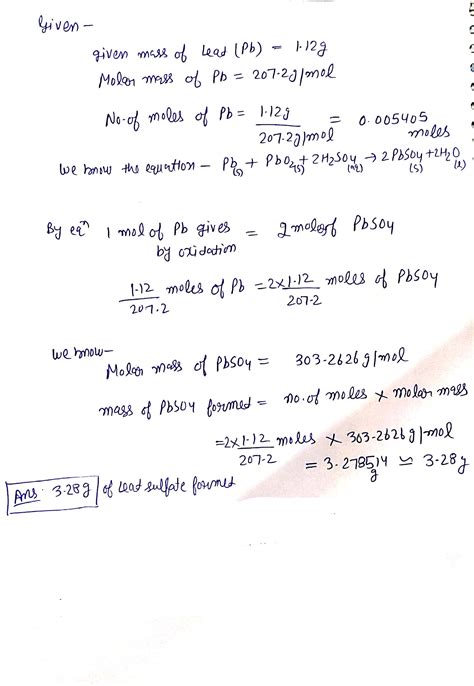 Given -
given mass of Lead (Pb) = 1.12g
Molar mass of Pb = 207.2g/mol
No. of moles of Pb = 1.12g / 207.2g/mol = 0.005405 moles
We know the equation - Pb(s) + PbO2(s) + 2H2SO4(aq) → 2PbSO4(s) + 2H2O(l)
By eqn 1 mol of Pb gives by oxidation = 2 moles of PbSO4
1.12 / 207.2 moles of Pb = 2×1.12 / 207.2 moles of PbSO4
We know-
Molar mass of PbSO4 = 303.2626g/mol
mass of PbSO4 formed = no. of moles × molar mass
= 2×1.12 / 207.2 moles × 303.2626g/mol
= 3.278514 g ≃ 3.28g
Ans. 3.28g of lead sulfate formed